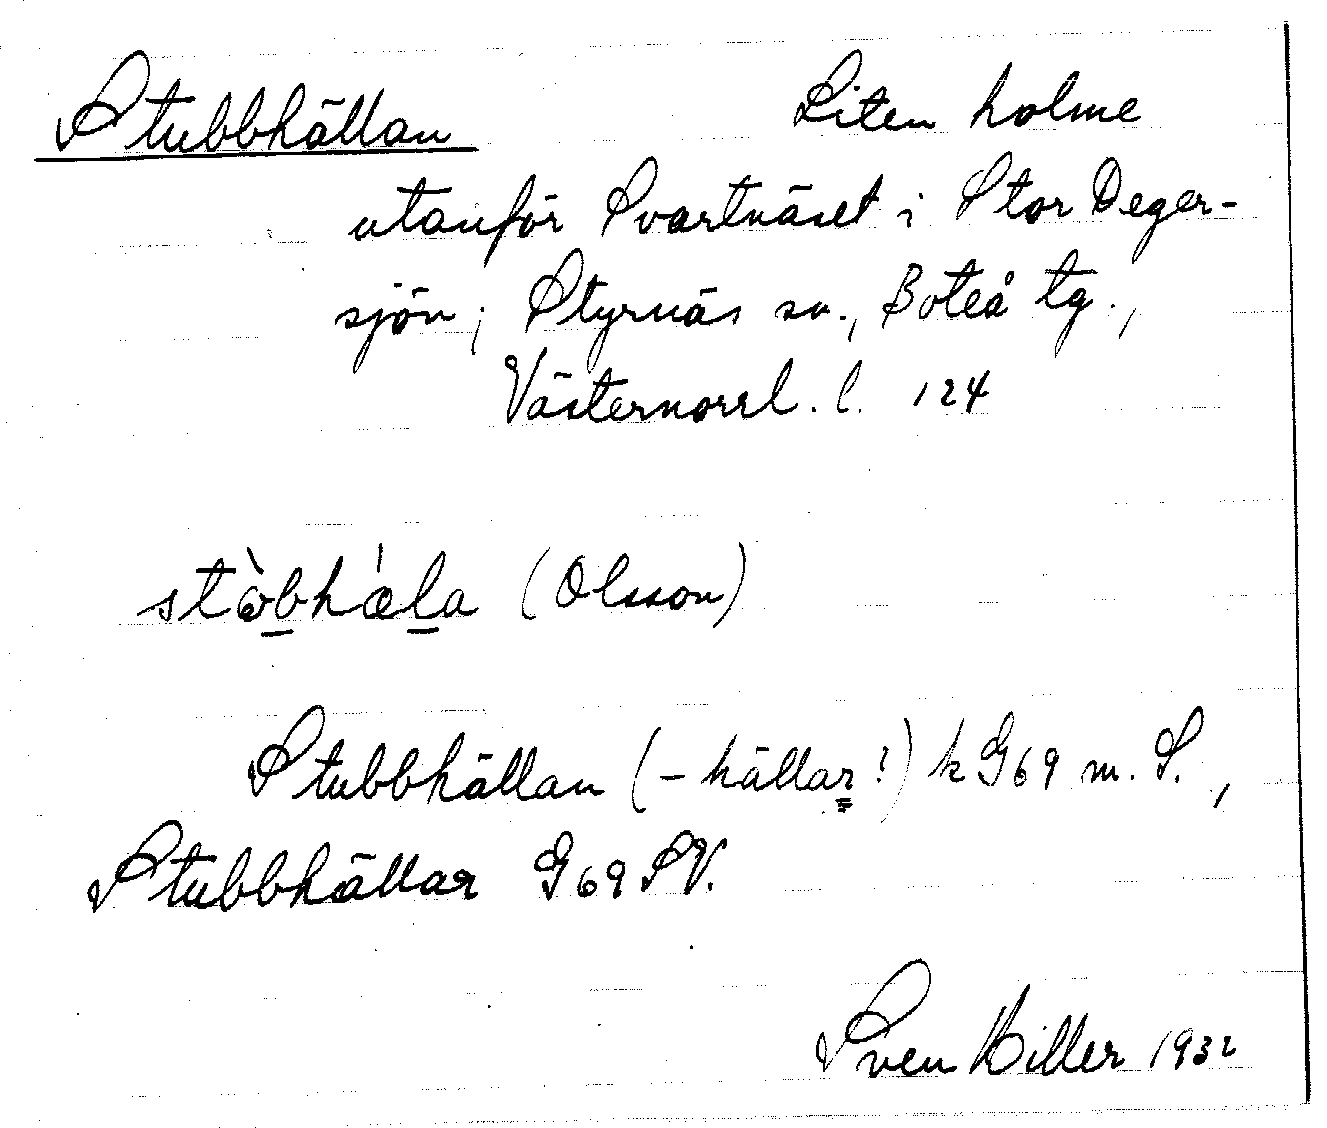 Stubbhällan Liten holme
utanför Svartnäset i Stor Deger-
sjön; Styrnäs sn., Boteå tg.,
Västernorrl. l. 124
stòbhæ̍la (Olsson)
Stubbhällan (-hällar!) k G69 m. S.,
Stubbhällar G69 SV.
Sven Hiller 1932